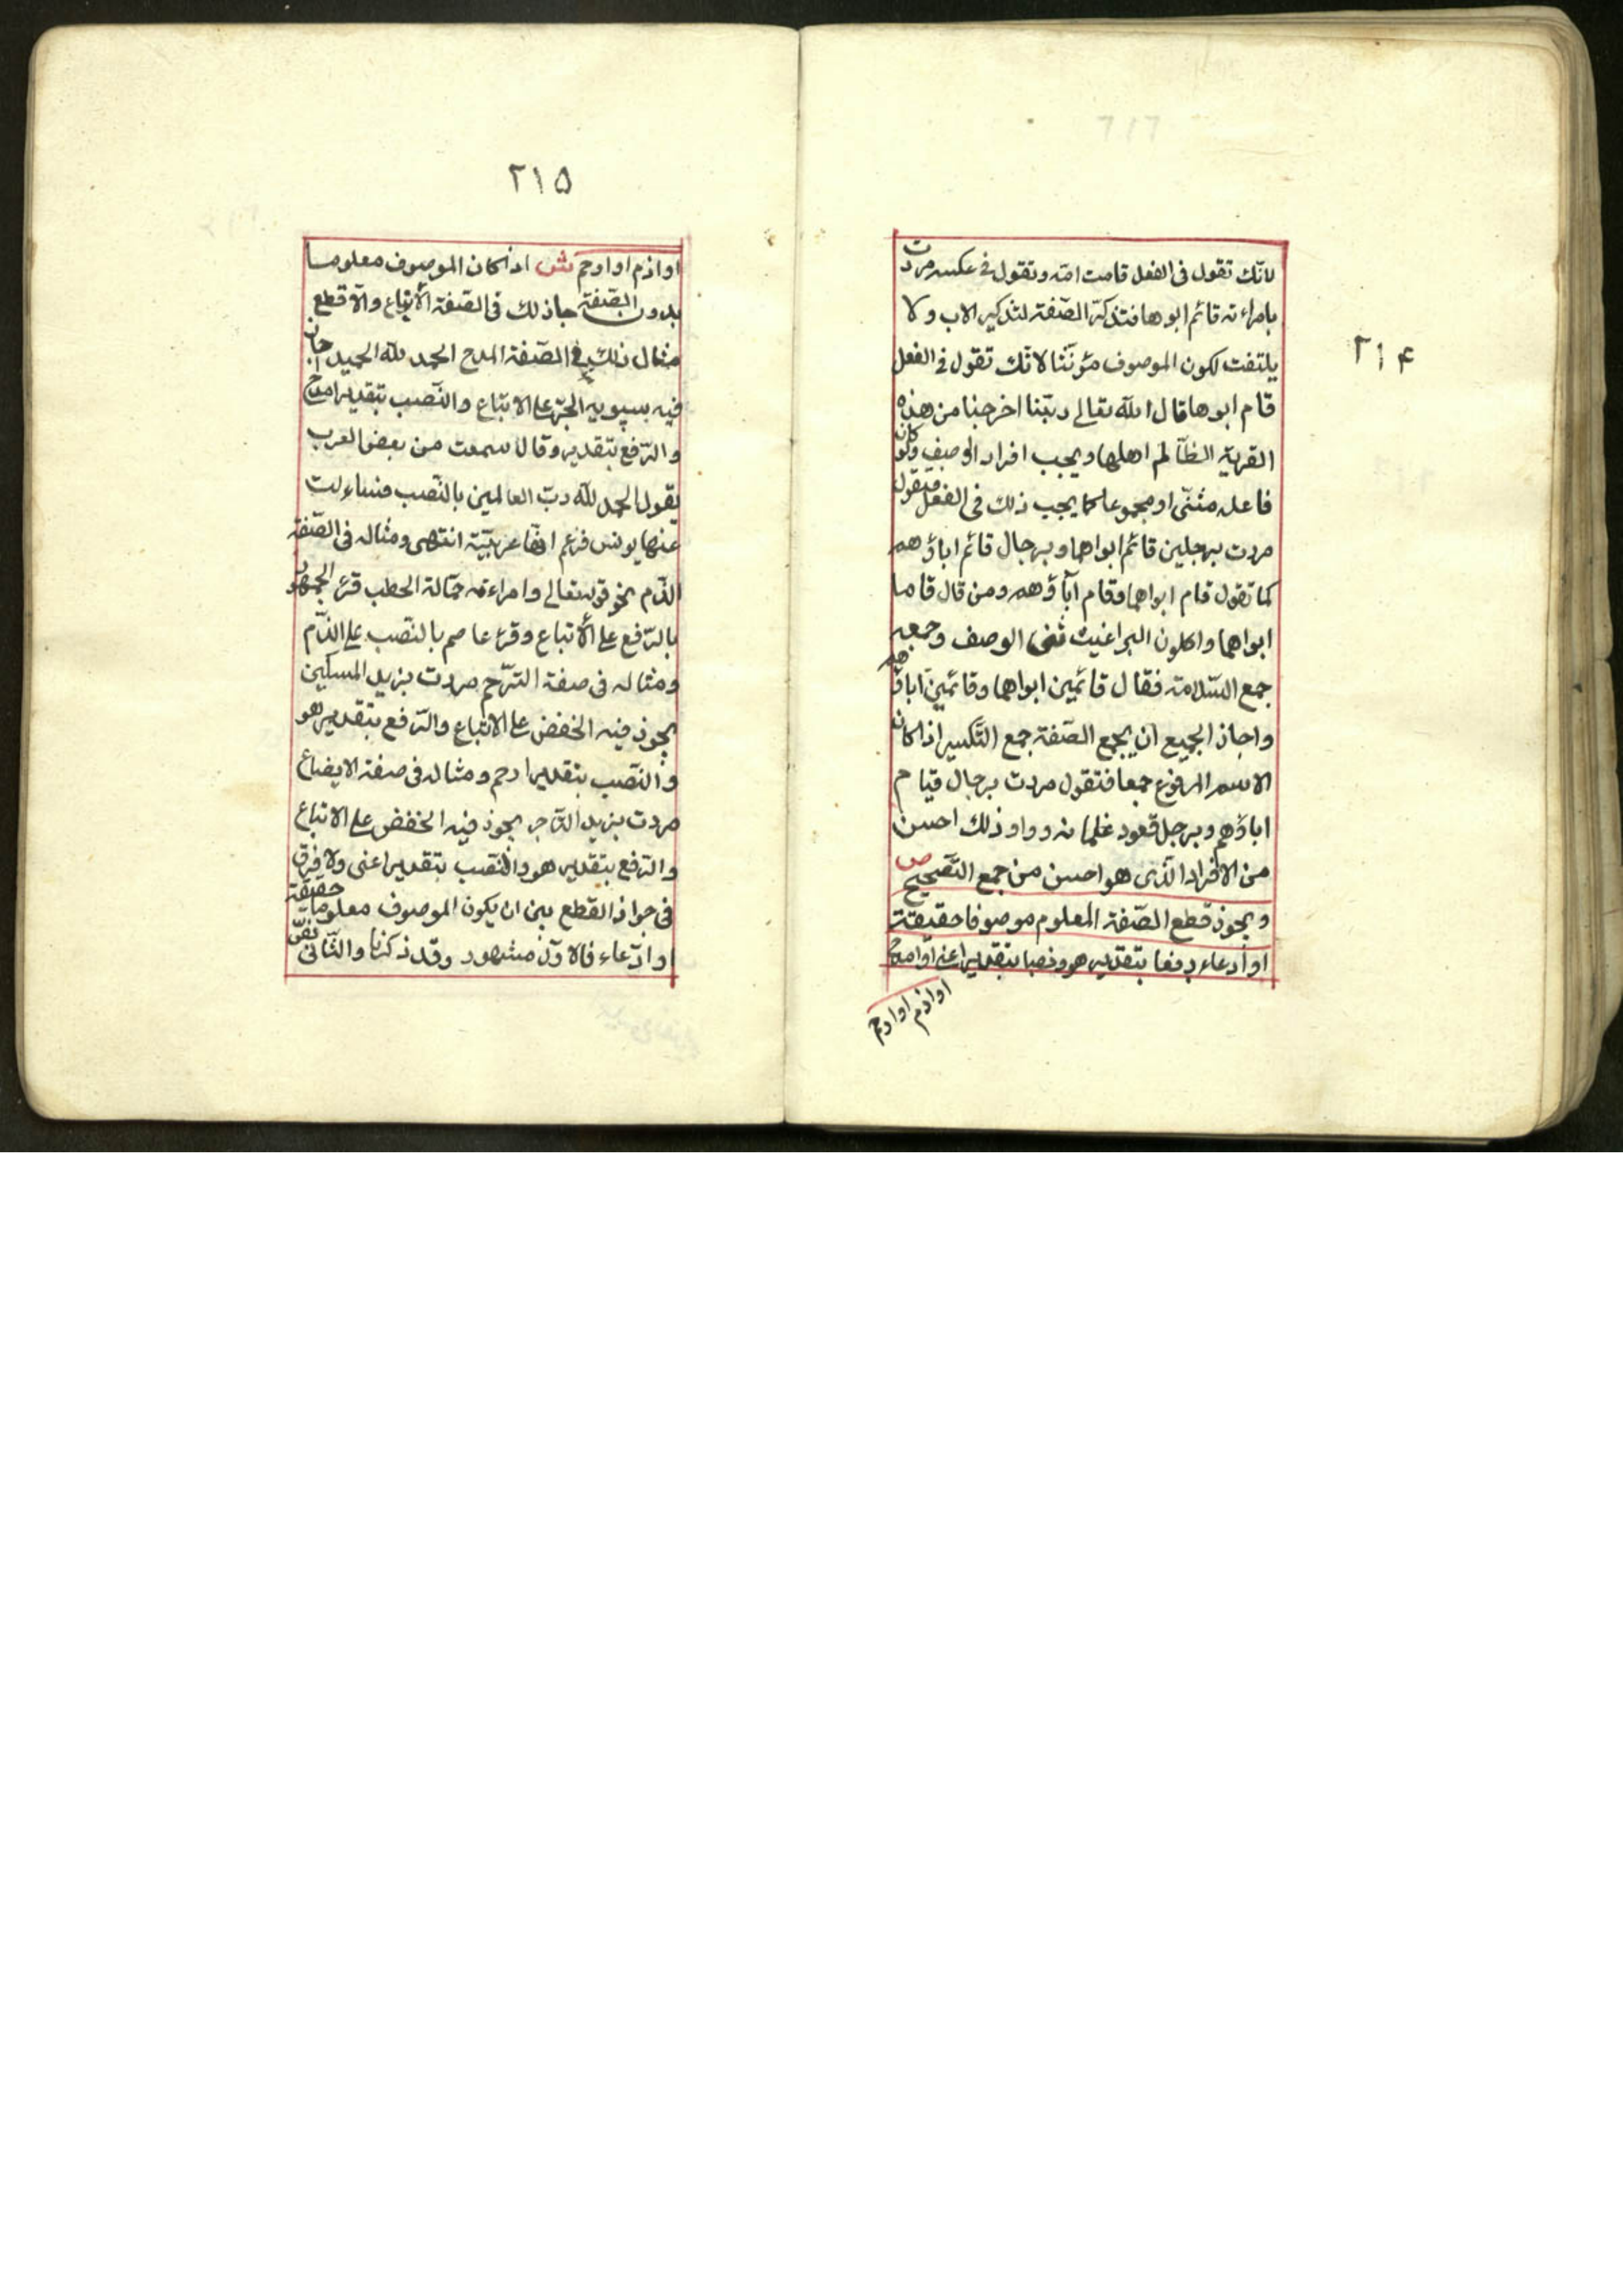 ٢١۴
لانّك تقول فى الفعل قامت امّه وتقول فى عكسه مردت
بامراءته قائم ابوها فتذكّر الصّفة لتذكير الاب ولا
يلتفت لكون الموصوف مؤنّثا لانّك تقول فى الفعل
قام ابوها قال الله تعالى ربّنا اخرجنا من هذه
القرية الظّالم اهلها ويجب افراد الوصف ولو كان
فاعله مثنّى او مجموعا كما يجب ذلك فى الفعل فتقول
مردت برجلين قائم ابواهما وبرجال قائم اباؤهم
كما تقول قام ابواهما وقام آباؤهم ومن قال قاما
ابواهما واكلون البراغيث ثنى الوصف وجمعه
جمع السّلامة فقال قائمين ابواهما وقائمين اباؤهم
واجاز الجميع ان يجمع الصّفة جمع التّكسير اذا كان
الاسم المرفوع جمعا فتقول مردت برجال قيام
اباؤهم وبرجل قعود غلمانه وواو ذلك احسن
من الافراد الّذى هو احسن من جمع التّصحيح ص
ويجوز قطع الصّفة المعلوم موصوفا حقيقة
او ادعاء رفعا بتقدير هو ونصبا بتقدير اعنى او امدح
او اذم او ارحم
٢١۵
او اذم او ارحم ش اذا كان الموصوف معلوما
بدون الصّفة جاز لك فى الصّفة الأتباع والآقطع
مثال ذلك فى الصّفة المدح الحمد لله الحميد اجاز
فيه سيبويه الجرّ على الاتباع والنّصب بتقدير امدح
والرّفع بتقدير وقال سمعت من بعض العرب
يقول الحمد لله ربّ العالمين بالنّصب فساءلت
عنها يونس فزعم انّها عربيّة انتهى ومثاله فى الصّفة
الذّم نحو قوله تعالى وامراءته حمّالة الحطب قرء الجمهور
بالرّفع على الأتباع وقرء عاصم بالنّصب على الذّم
ومثاله فى صفة التّرحّم مردت بزيد المسكين
يجوز فيه الخفض على الاتباع والرّفع بتقدير هو
والنّصب بتقدير ارحم ومثاله فى صفة الايضاع
مردت بزيد التّاجر يجوز فيه الخفض على الاتباع
والرّفع بتقدير هو والنّصب بتقدير اعنى ولا فرق
فى جواز القطع بين ان يكون الموصوف معلوما حقيقة
او ادّعاء فالاوّل مشهور وقد ذكرنا والثّانى نصّ